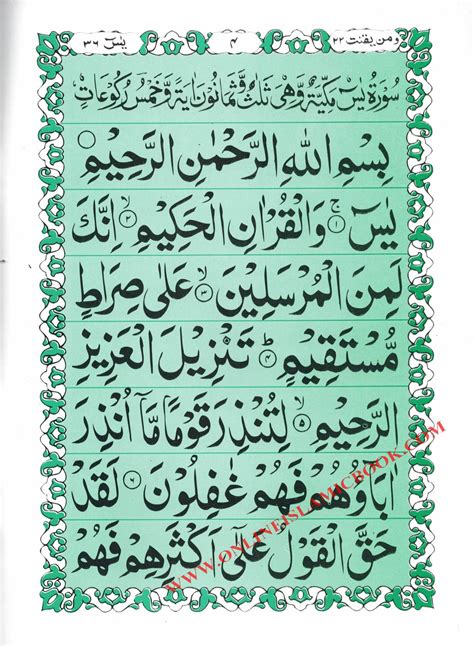 ومن يقنت ٢٢ ٤ يٰسٓ ٣٦
سُوْرَةُ يٰسٓ مَكِّيَّةٌ وَّهِيَ ثَلٰثٌ وَّثَمَانُوْنَ اٰيَةً وَّخَمْسُ رُكُوْعَاتٍ
بِسْمِ اللّٰهِ الرَّحْمٰنِ الرَّحِيْمِ
يٰسٓ ۚ ﴿١﴾ وَالْقُرْاٰنِ الْحَكِيْمِ ۙ ﴿٢﴾ اِنَّكَ
لَمِنَ الْمُرْسَلِيْنَ ۙ ﴿٣﴾ عَلٰى صِرَاطٍ
مُّسْتَقِيْمٍ ؕ ﴿٤﴾ تَنْزِيْلَ الْعَزِيْزِ
الرَّحِيْمِ ۙ ﴿٥﴾ لِتُنْذِرَ قَوْمًا مَّاۤ اُنْذِرَ
اٰبَآؤُهُمْ فَهُمْ غٰفِلُوْنَ ﴿٦﴾ لَقَدْ
حَقَّ الْقَوْلُ عَلٰۤى اَكْثَرِهِمْ فَهُمْ
WWW.ONLINEISLAMICBOOK.COM